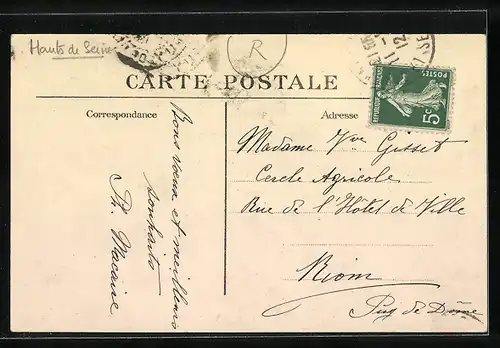 Hauts de Seine
R
CARTE POSTALE
Correspondance
Adresse
REPUBLIQUE FRANÇAISE
POSTES
5c
Bons vœux et meilleurs
souhaits
Ph Macaire
Madame Vve Gusset
Cercle Agricole
Rue de l'Hôtel de Ville
Riom
Puy de Dôme